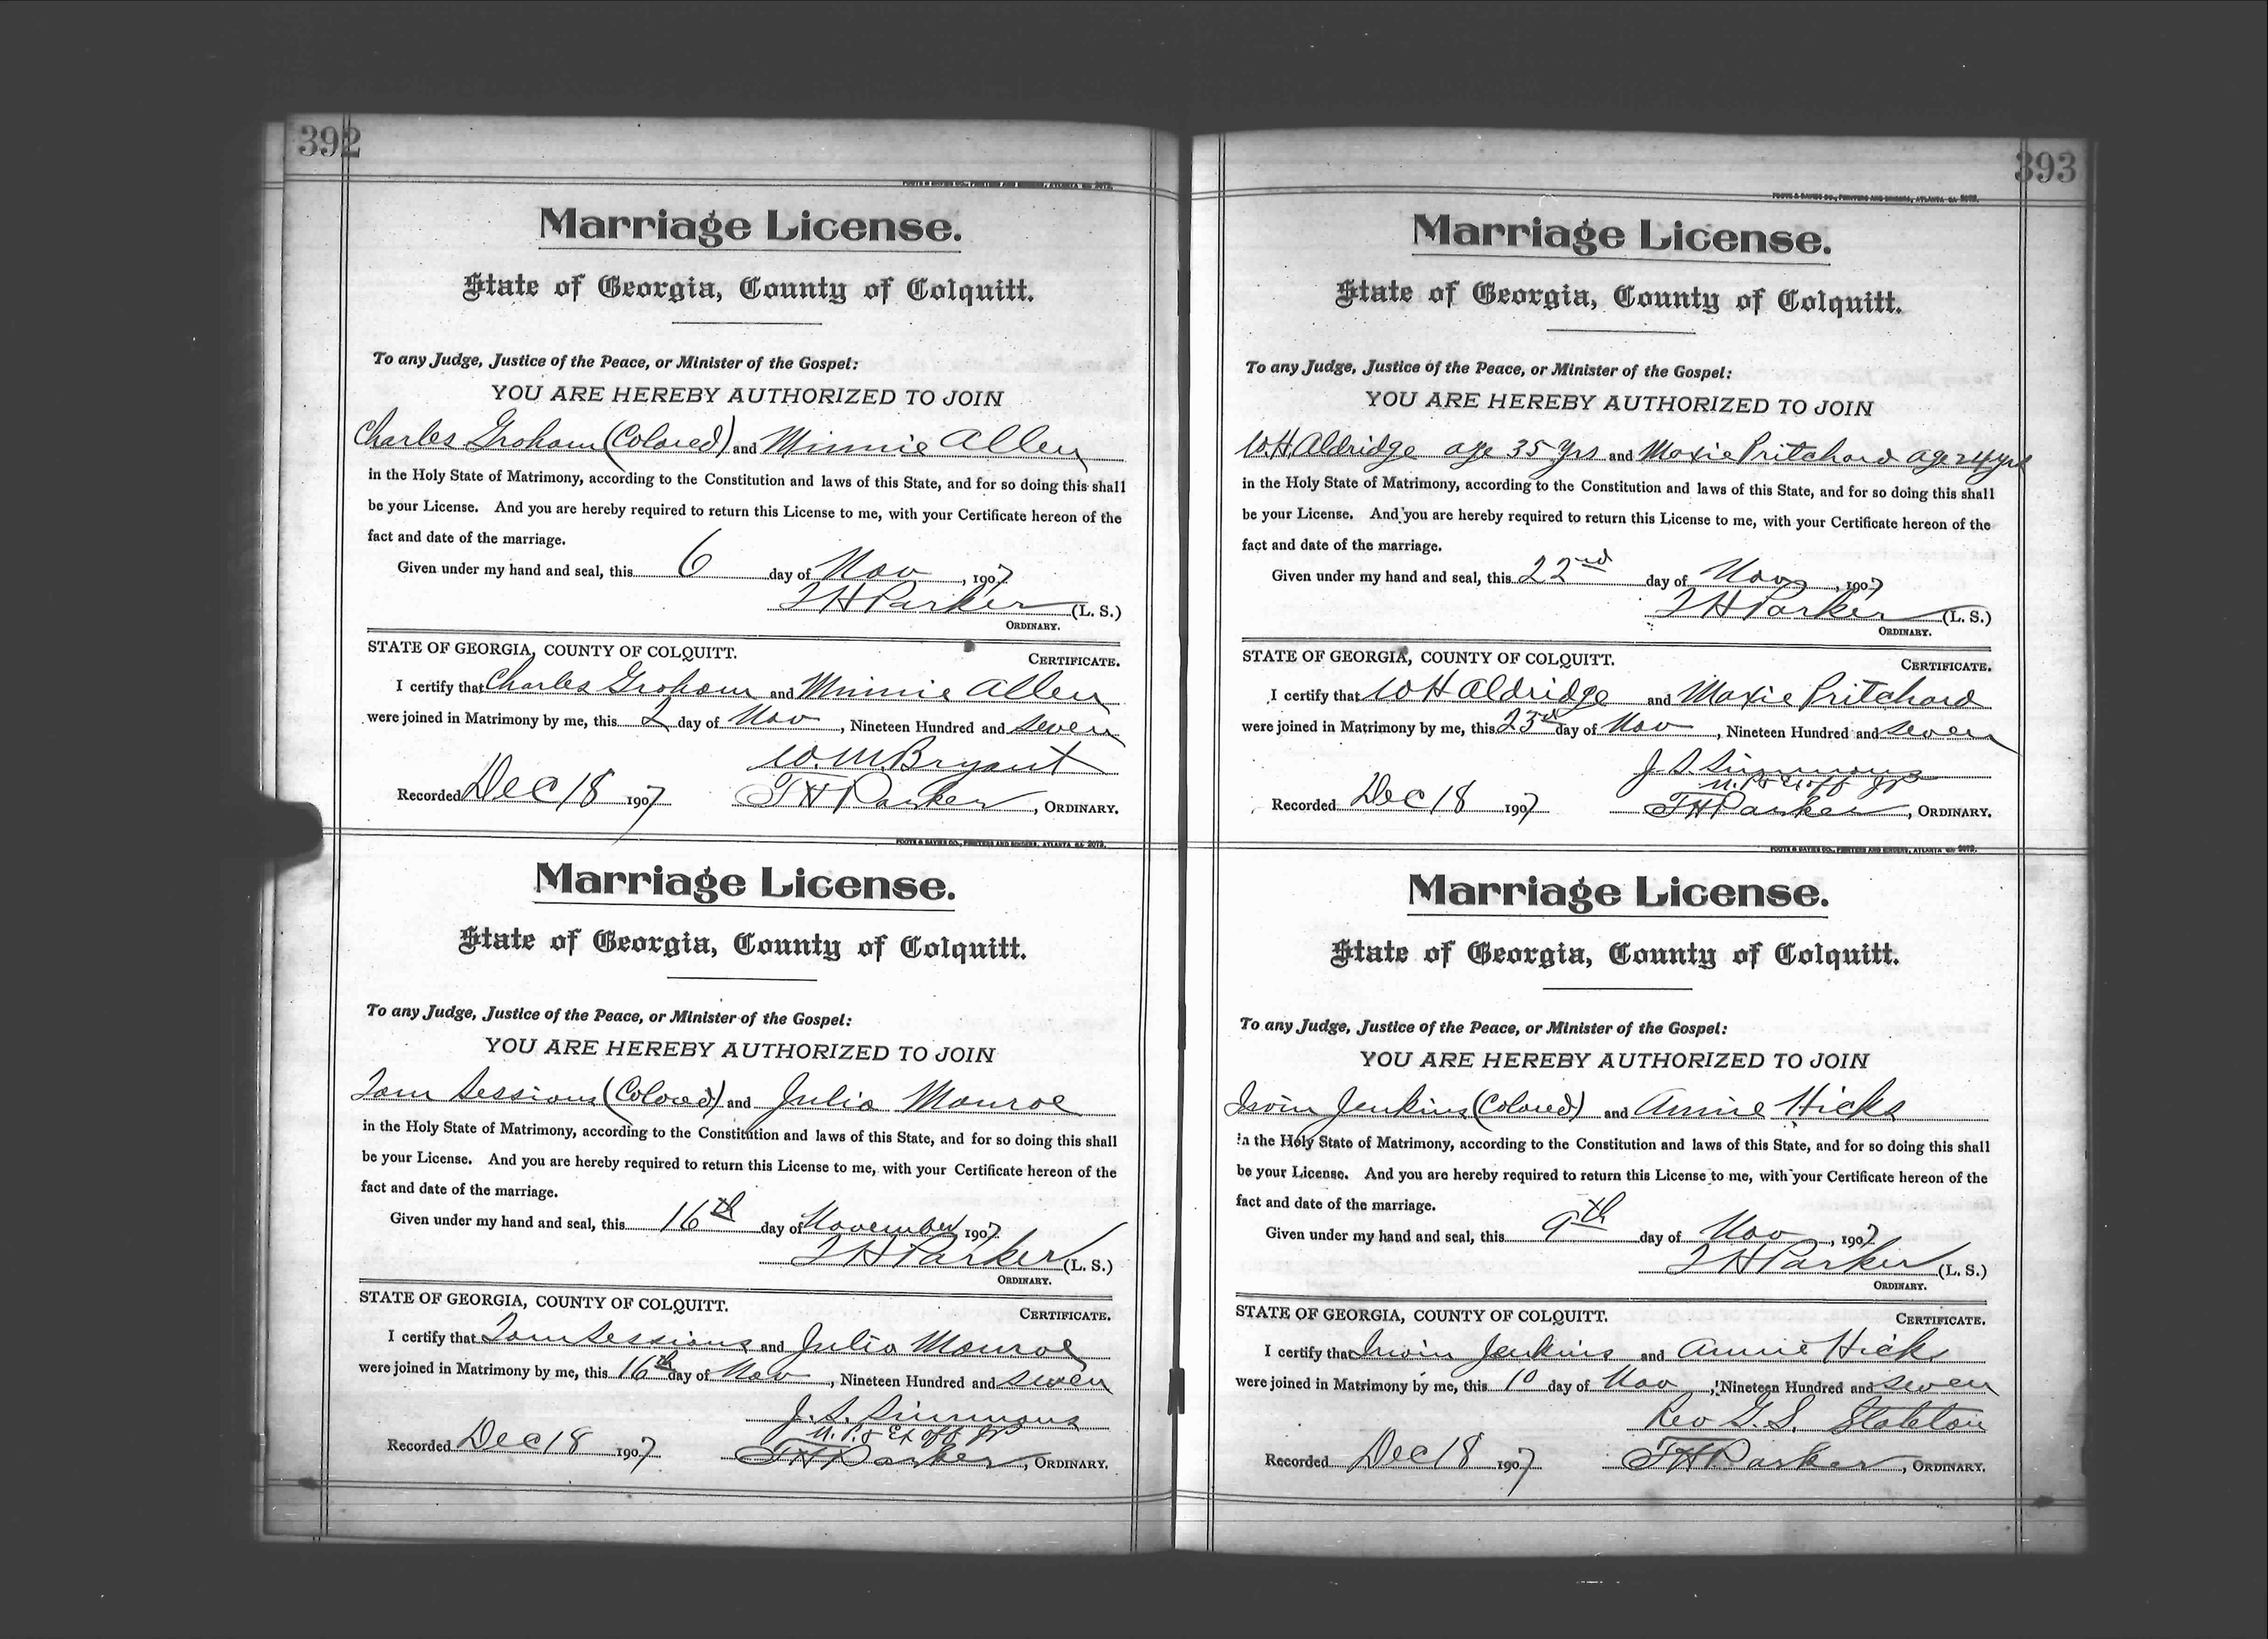 392
FOOTE & DAVIES CO., PRINTERS AND BINDERS, ATLANTA GA
Marriage License.
State of Georgia, County of Colquitt.
To any Judge, Justice of the Peace, or Minister of the Gospel:
YOU ARE HEREBY AUTHORIZED TO JOIN
Charles Groham (Colored) and Minnie Allen
in the Holy State of Matrimony, according to the Constitution and laws of this State, and for so doing this shall
be your License. And you are hereby required to return this License to me, with your Certificate hereon of the
fact and date of the marriage.
Given under my hand and seal, this 6 day of Nov, 1907
T H Parker (L. S.)
ORDINARY.
STATE OF GEORGIA, COUNTY OF COLQUITT.
CERTIFICATE.
I certify that Charles Groham and Minnie Allen
were joined in Matrimony by me, this 2 day of Nov, Nineteen Hundred and seven
W. M. Bryant
Recorded Dec 18 1907 T H Parker, ORDINARY.
FOOTE & DAVIES CO., PRINTERS AND BINDERS, ATLANTA GA
Marriage License.
State of Georgia, County of Colquitt.
To any Judge, Justice of the Peace, or Minister of the Gospel:
YOU ARE HEREBY AUTHORIZED TO JOIN
Tom Sessions (Colored) and Julia Monroe
in the Holy State of Matrimony, according to the Constitution and laws of this State, and for so doing this shall
be your License. And you are hereby required to return this License to me, with your Certificate hereon of the
fact and date of the marriage.
Given under my hand and seal, this 16th day of November 1907
T H Parker (L. S.)
ORDINARY.
STATE OF GEORGIA, COUNTY OF COLQUITT.
CERTIFICATE.
I certify that Tom Sessions and Julia Monroe
were joined in Matrimony by me, this 16th day of Nov, Nineteen Hundred and seven
J. S. Simmons
N. P. & Ex off JP
Recorded Dec 18 1907 T H Parker, ORDINARY.
393
FOOTE & DAVIES CO., PRINTERS AND BINDERS, ATLANTA GA
Marriage License.
State of Georgia, County of Colquitt.
To any Judge, Justice of the Peace, or Minister of the Gospel:
YOU ARE HEREBY AUTHORIZED TO JOIN
W. H. Aldridge age 35 yrs and Moxie Pritchard age 24 yrs
in the Holy State of Matrimony, according to the Constitution and laws of this State, and for so doing this shall
be your License. And you are hereby required to return this License to me, with your Certificate hereon of the
fact and date of the marriage.
Given under my hand and seal, this 22nd day of Nov, 1907
T H Parker (L. S.)
ORDINARY.
STATE OF GEORGIA, COUNTY OF COLQUITT.
CERTIFICATE.
I certify that W H Aldridge and Moxie Pritchard
were joined in Matrimony by me, this 23rd day of Nov, Nineteen Hundred and seven
J. S. Simmons
N. P. & Ex off JP
Recorded Dec 18 1907 T H Parker, ORDINARY.
FOOTE & DAVIES CO., PRINTERS AND BINDERS, ATLANTA GA
Marriage License.
State of Georgia, County of Colquitt.
To any Judge, Justice of the Peace, or Minister of the Gospel:
YOU ARE HEREBY AUTHORIZED TO JOIN
Irvin Jenkins (Colored) and Annie Hicks
in the Holy State of Matrimony, according to the Constitution and laws of this State, and for so doing this shall
be your License. And you are hereby required to return this License to me, with your Certificate hereon of the
fact and date of the marriage.
Given under my hand and seal, this 9th day of Nov, 1907
T H Parker (L. S.)
ORDINARY.
STATE OF GEORGIA, COUNTY OF COLQUITT.
CERTIFICATE.
I certify that Irwin Jenkins and Annie Hick
were joined in Matrimony by me, this 10 day of Nov, Nineteen Hundred and seven
Rev G. S.
Recorded Dec 18 1907 T H Parker, ORDINARY.